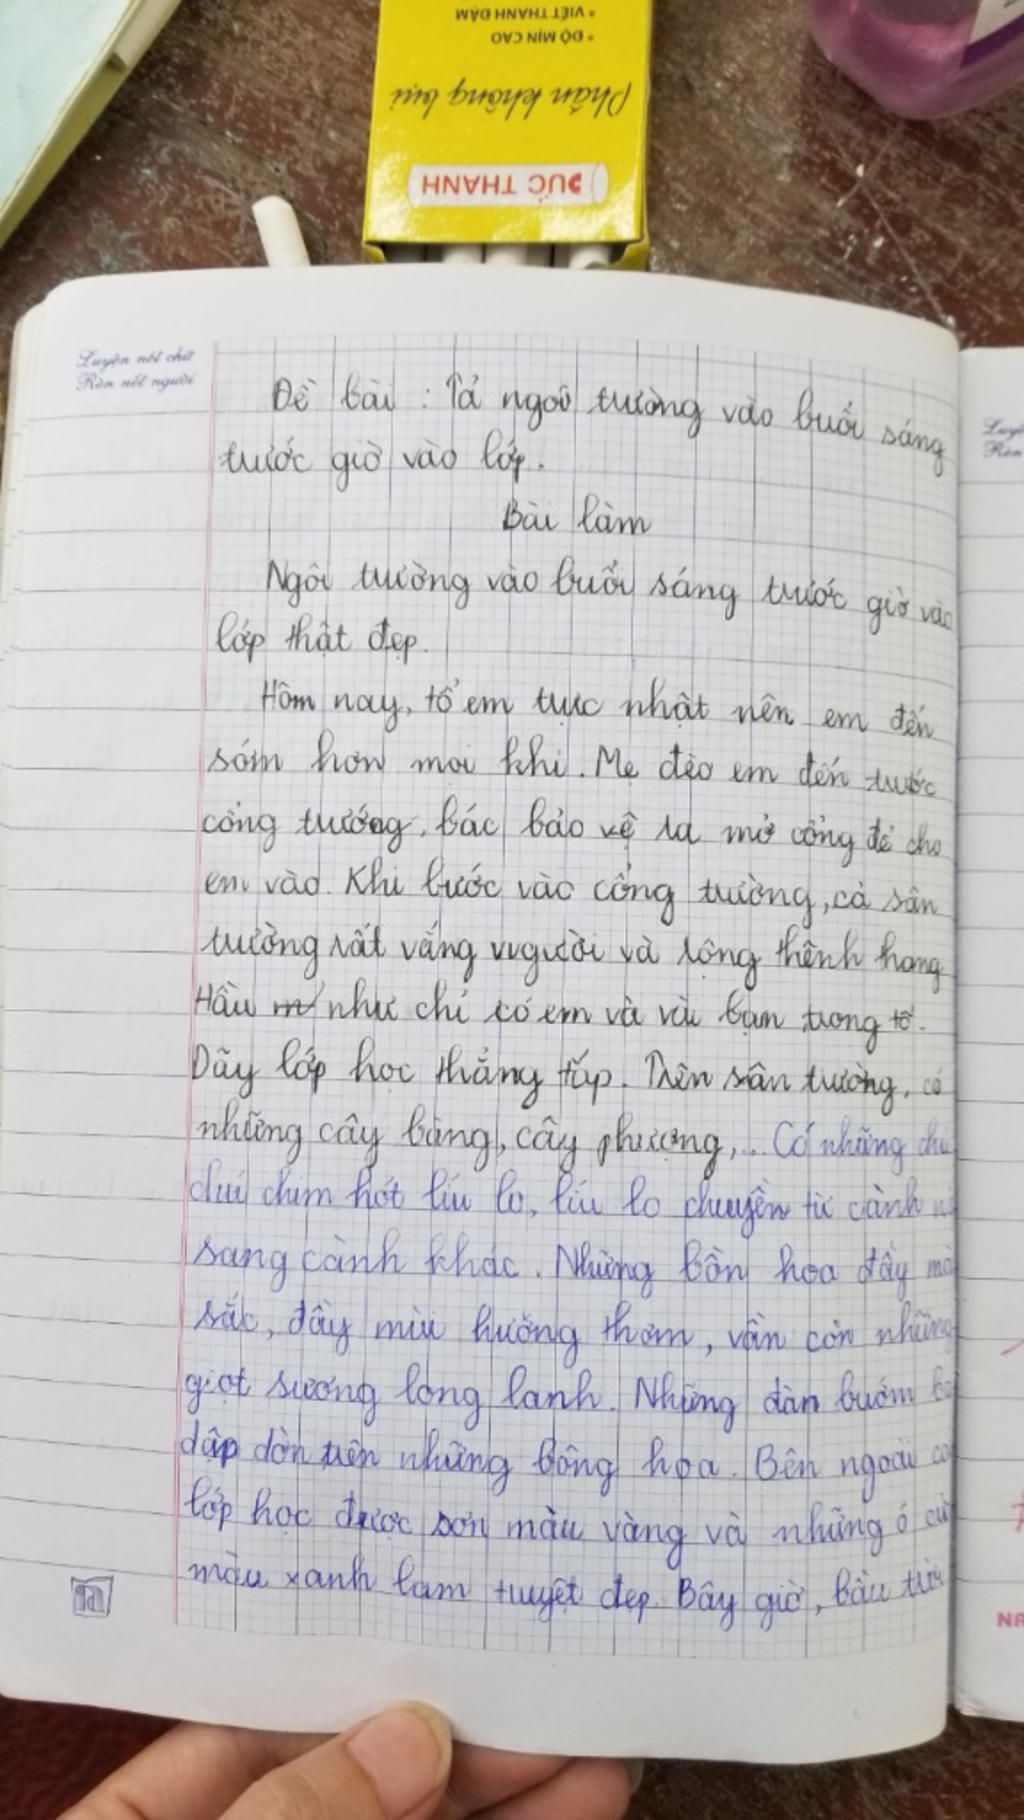 • VIẾT THANH ĐẬM
• ĐỘ MỊN CAO
Phấn không bụi
ĐỨC THANH
Luyện nét chữ
Rèn nết người
Đề bài : Tả ngôi trường vào buổi sáng
trước giờ vào lớp.
Bài làm
Ngôi trường vào buổi sáng trước giờ vào
lớp thật đẹp.
Hôm nay, tổ em trực nhật nên em đến
sớm hơn mọi khi. Mẹ đèo em đến trước
cổng trường, bác bảo vệ ra mở cổng để cho
em vào. Khi bước vào cổng trường, cả sân
trường rất vắng người và rộng thênh thang
Hầu như chỉ có em và vài bạn trong tổ.
Dãy lớp học thẳng tắp. Trên sân trường, có
những cây bàng, cây phượng,... Có những chú
chú chim hót líu lo, líu lo chuyền từ cành
sang cành khác. Những bồn hoa đầy mà
sắc, đầy mùi hương thơm, vẫn còn những
giọt sương long lanh. Những đàn bướm
dập dờn trên những bông hoa. Bên ngoài
lớp học được sơn màu vàng và những ô cử
màu xanh lam tuyệt đẹp. Bây giờ, bầu trời
Luyệ
Rèn
NA